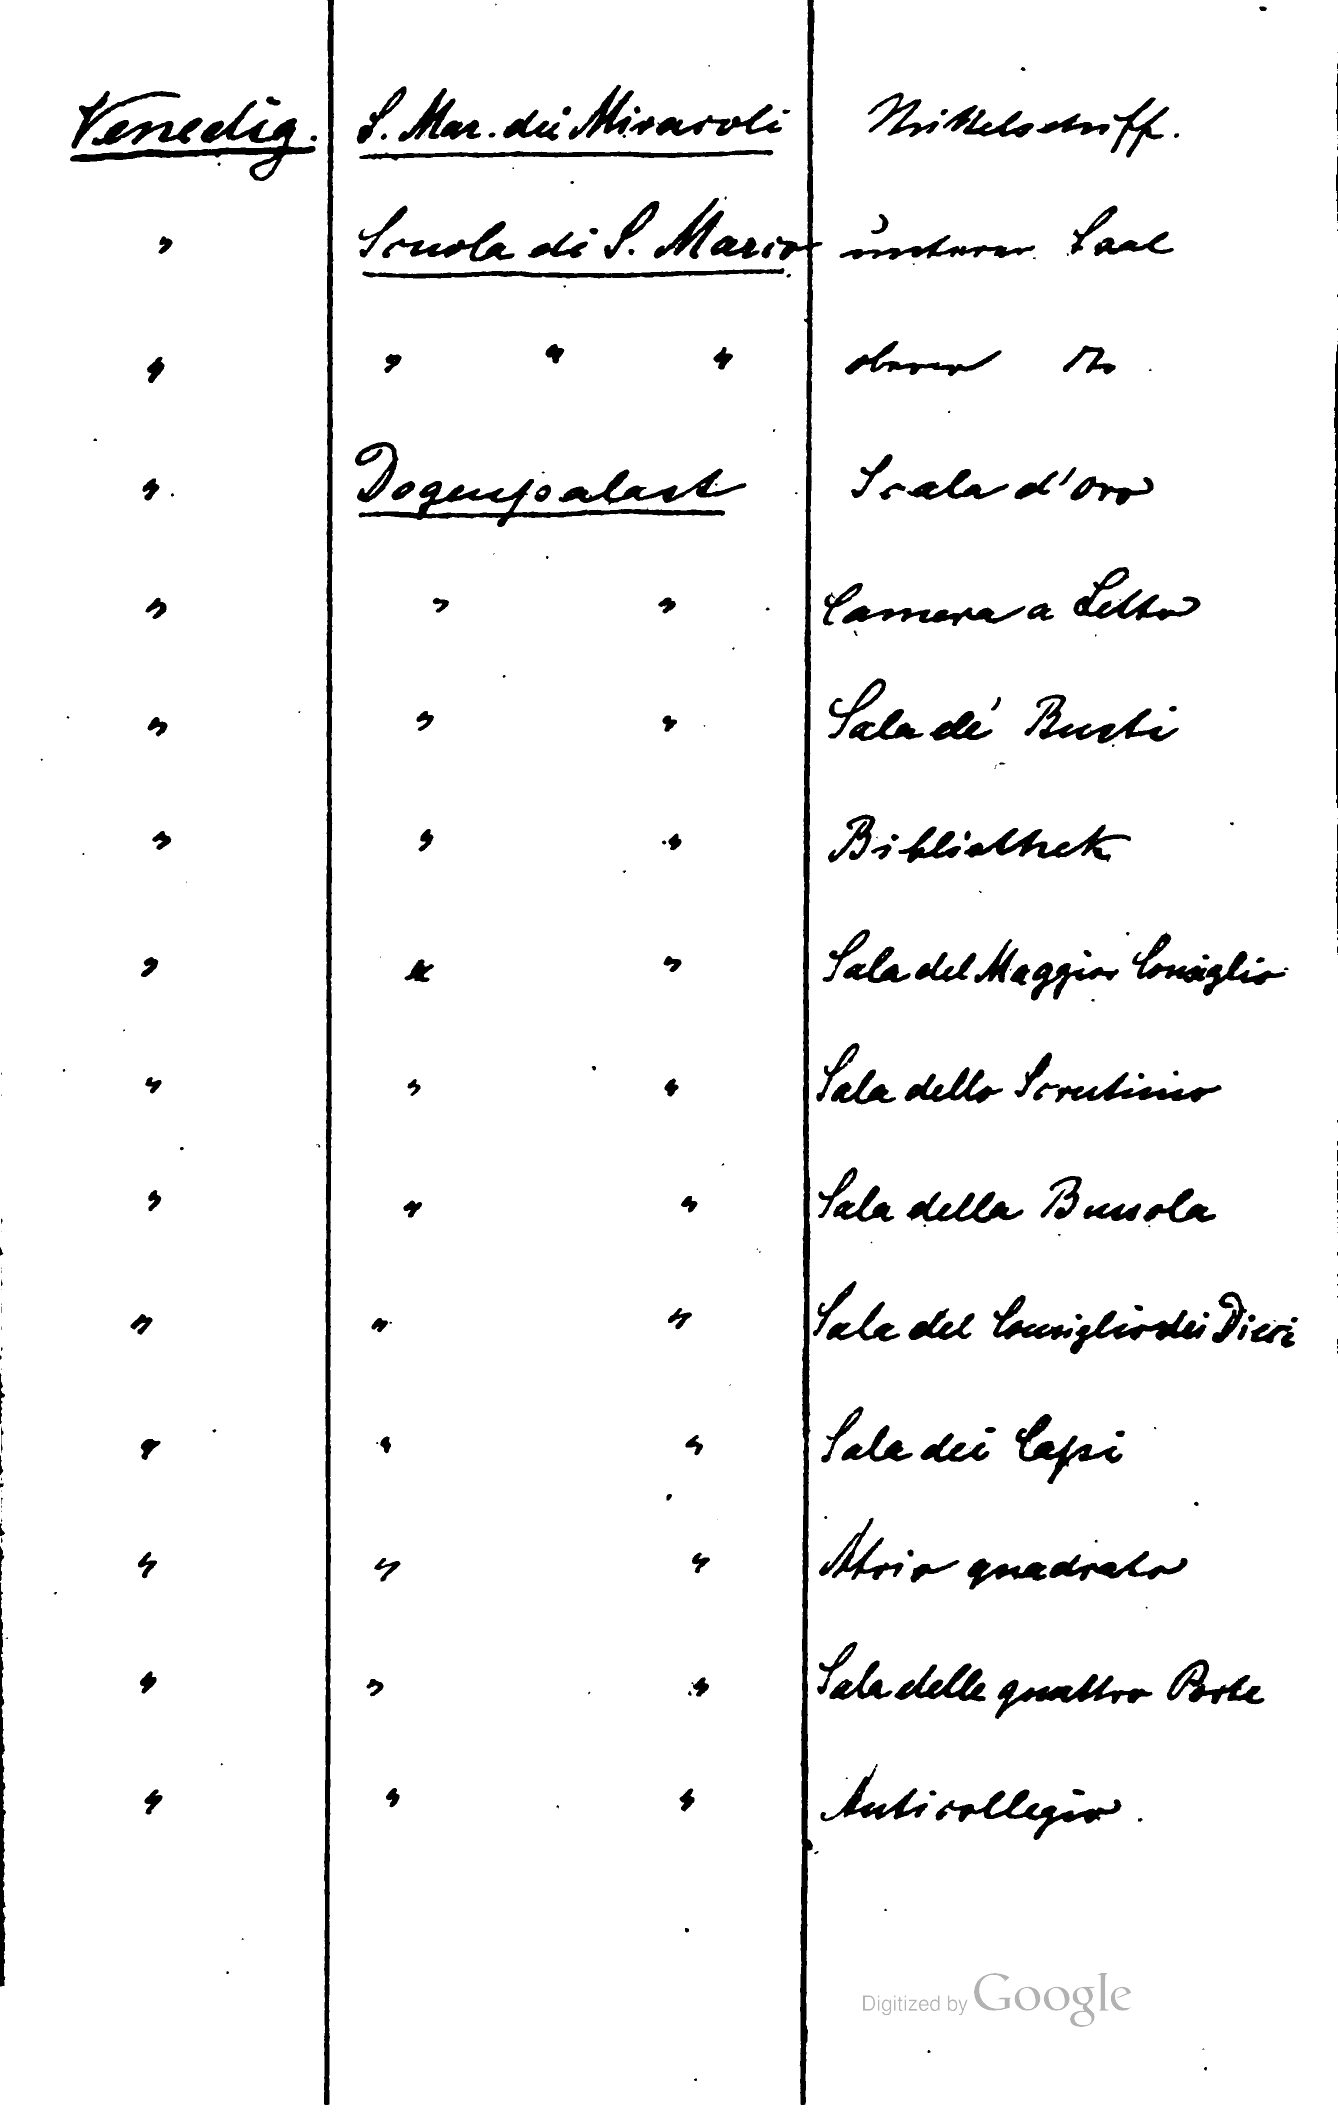 Venedig. S. Mar. dei Miracoli Mittelschiff.
" Scuola di S. Marco unterer Saal
" " " " oberer do
" Dogenpalast Scala d'oro
" " " Camera a Letto
" " " Sala de' Busti
" " " Bibliothek
" " " Sala del Maggior Consiglio
" " " Sala dello Scrutinio
" " " Sala della Bussola
" " " Sala del Consiglio dei Dieci
" " " Sala dei Capi
" " " Atrio quadrato
" " " Sala delle quattro Porte
" " " Anticollegio.
Digitized by Google